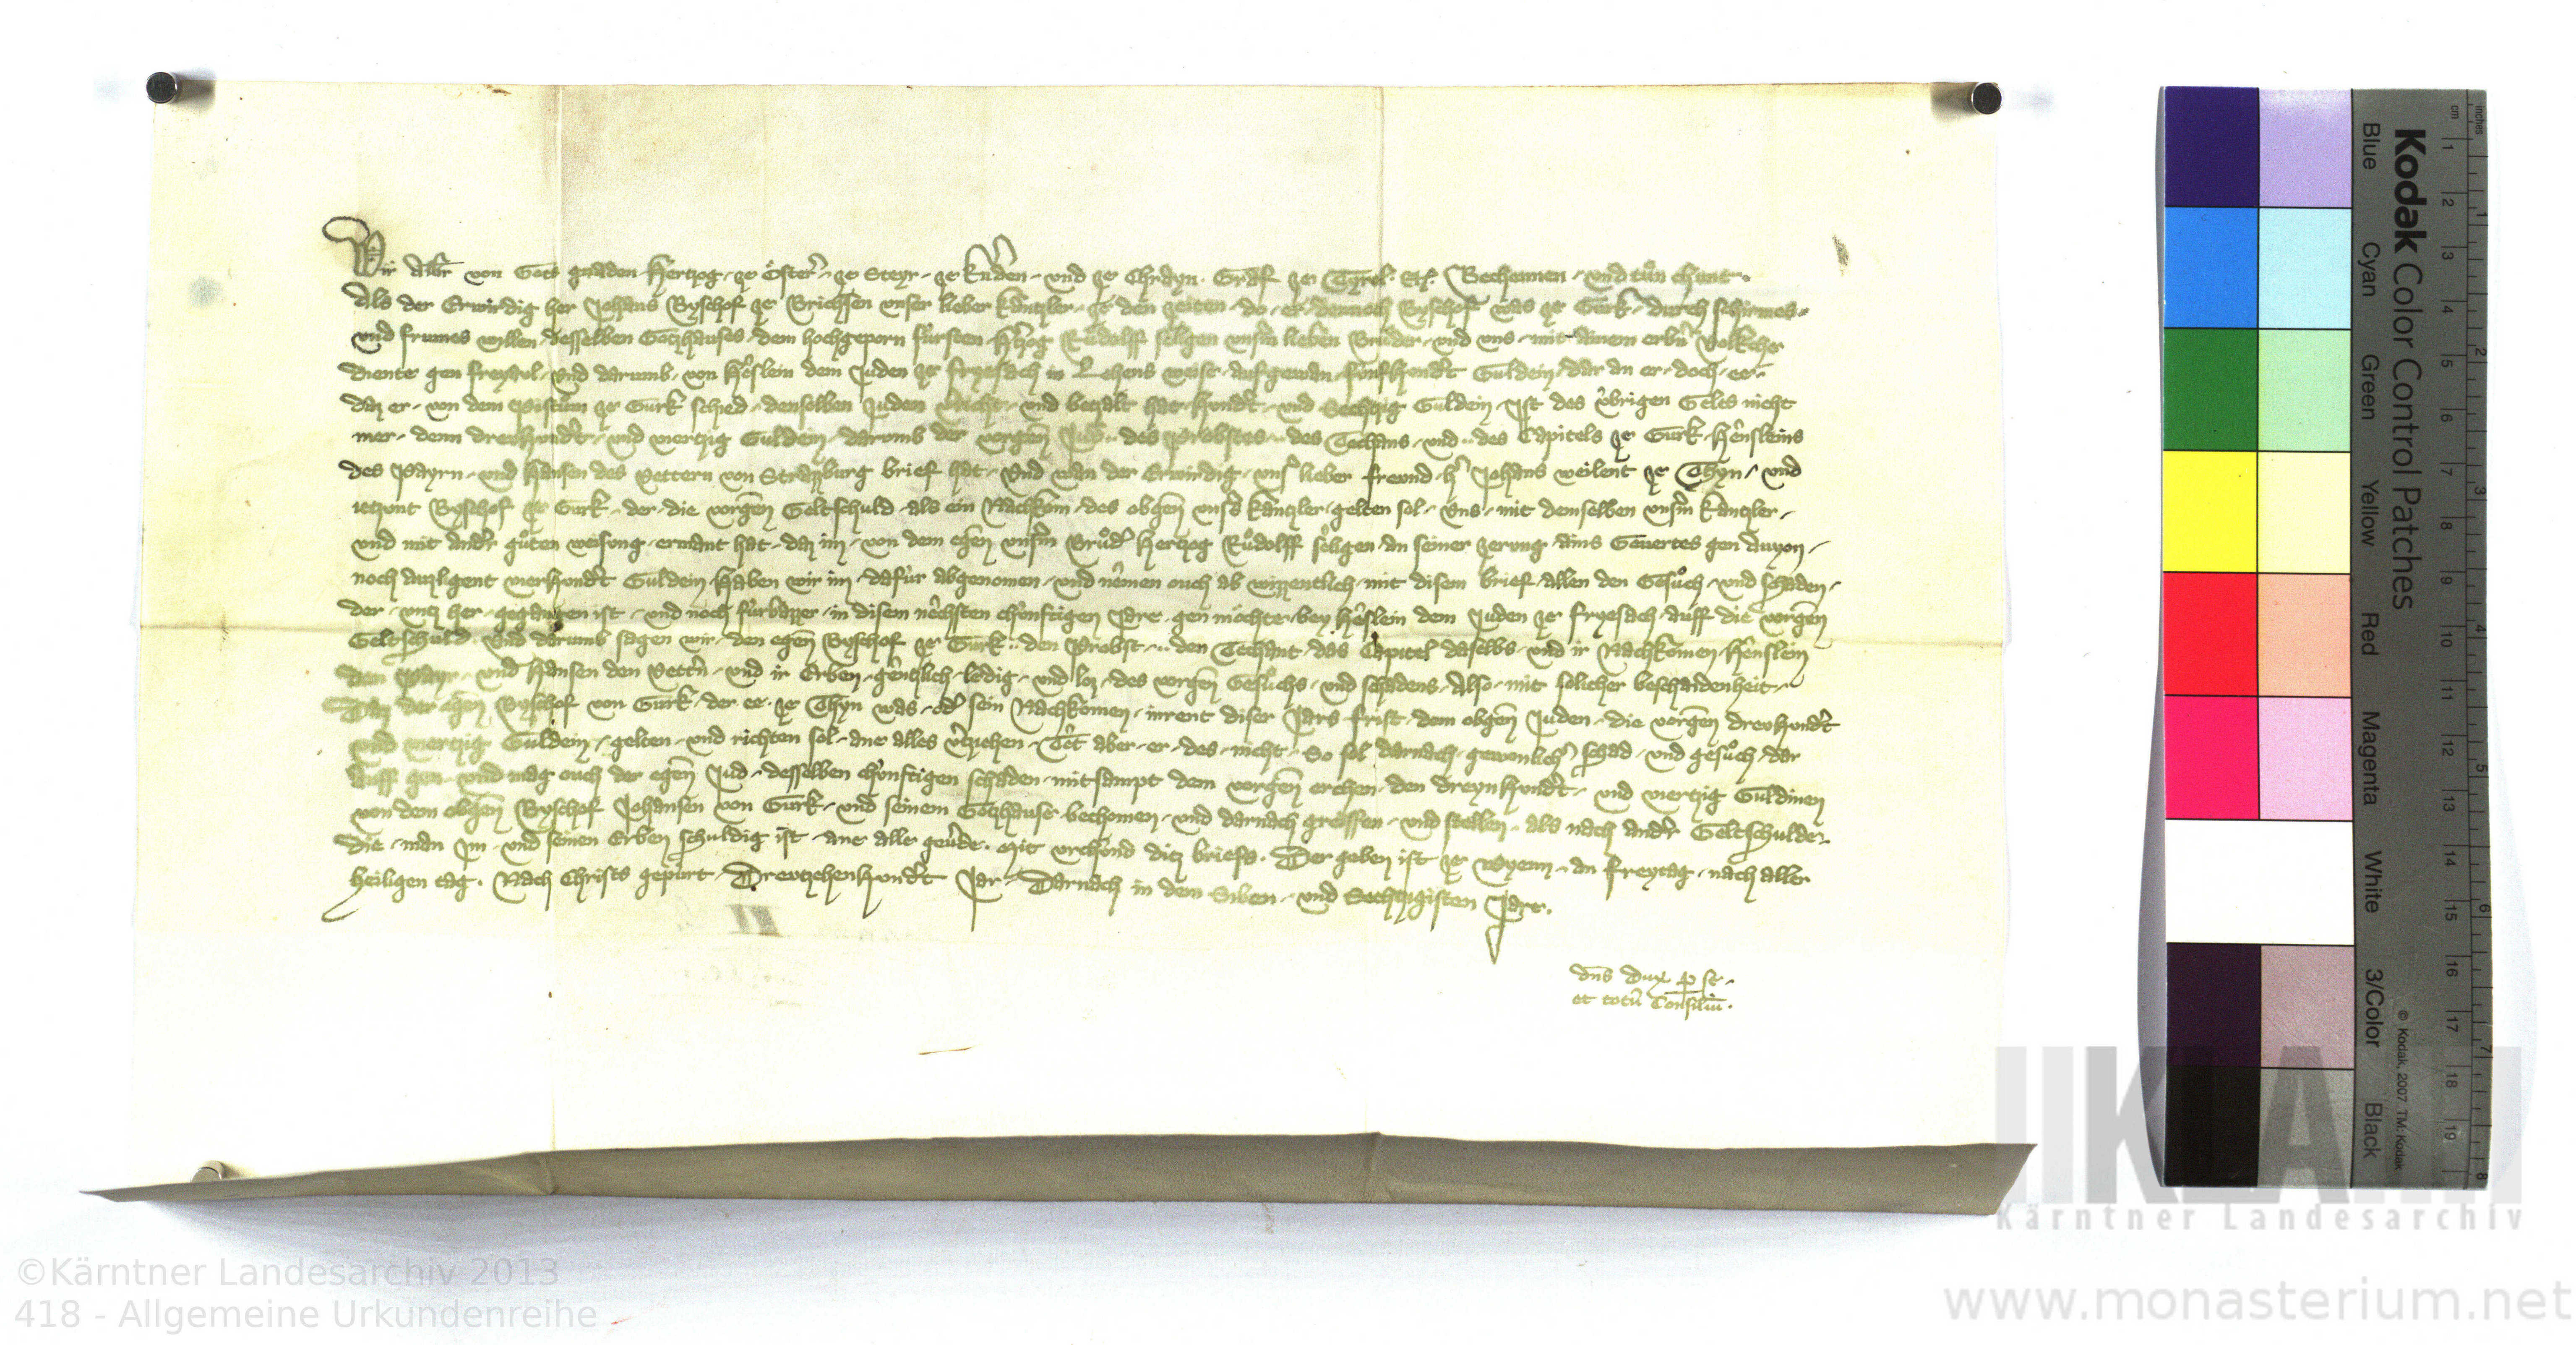 Wir Albr̄ von Gots gnaden Hertzog ze Österr̄ ze Steyr ze kërnden und ze Chrayn Graf ze Tyrol etc Bechennen und tůn chunt
Als der Erwirdig her Johans Byschof ze Brichsen unser lieber kantzler ze den zeiten do er dennoch Byschof was ze Gurk durch schirmes
und frumes willen desselben Gotzhauses dem hochgeporn fürsten H'tzog Růdolff seligen unsm̄ lieben Brůder und uns mit ainem erbn̄ volk her
diente gen freyaul Und darumb von Hëslein dem Juden ze fryesach in Lehens weise aufgewan fünfhundt Guldein dar an er doch ee
daz er von dem Pistům ze Gurk schied denselben Juden v'richt und betzalt hat hundt und Sechtzig Guldein Ist des übrigen Gelts nicht
mer denn dreuhundt und viertzig Guldein darumb der vorgen̄ Jud des Probstes des Techans und des Capitels ze Gurk Hënsleins
des Payrn und Hansen des Vettern von Strazburg brief hat Und wan der Erwirdig uns' lieber freund h' Johans weilent ze Thyn und
ietzunt Byschof ze Gurk der die vorgen̄ Geltschuld als ein Nachkom des obgen̄ unss kantzler gelten sol uns mit demselben unsm̄ kantzler
und mit andr' gůten weisung ermant hat daz im von dem egen̄ unsm̄ Brůd' Hertzog Růdolff seligen an seiner zerung ains Geuertes gen Auyon
noch auzligent vierhundt Guldein Haben wir im dafür abgenomen und nemen ouch ab wizzentlich mit disem brief allen den Gesůch und schaden
der untz her gegangen ist und noch fürbazzer in disem nëchsten chünftigen Jare gen möchte bey Hëslein dem Juden ze fryesach auff die vorgen̄
Geltschuld Und darumb sagen wir den egen̄ Byschof ze Gurk den Probst den Techant das Capitel daselbs und ir Nachkomen Hënslein
den Payr und Hansen den Vettn̄ und ir Erben gëntzlich ledig und loz des vorgen̄ Gesůchs und schadens Also mit solicher beschaidenheit
Daz der egen̄ Byschof von Gurk der ee ze Thyn was od' sein Nachkomen inrent diser Jars frist dem obgen̄ Juden die vorgen̄ dreuhundt
und viertzig Guldein gelten und richten sol ane alles v'tziehen Tët aber er des nicht So sol darnach gewonlich' schad und gesůch dar
auff gen und mag ouch der egen̄ Jud desselben chünftigen schaden mitsampt dem vorgen̄ erchen den dreyn hundt und viertzig Guldinen
von dem obgen̄ Byschof Johansen von Gurk und seinem Gotzhause bechomen und darnach greiffen und stellen als nach andr' Geltschulde
die man Im und seinen Erben schuldig ist ane alle geu'de. Mit urchund ditz briefs. Der geben ist ze Wyenn an freytag nach aller
heiligen tag. Nach Christs gepurt Dreutzehenhundt Jar Darnach in dem Siben und Sechtzigisten Jare.
dn̄s dux p se
et totū Consiliū.
Kodak Color Control Patches
Blue Cyan Green Yellow Red Magenta White 3/Color Black
© Kodak, 2007. TM: Kodak
cm 1 2 3 4 5 6 7 8 9 10 11 12 13 14 15 16 17 18 19
inches 1 2 3 4 5 6 7 8
KLA
Kärntner Landesarchiv
©Kärntner Landesarchiv 2013
418 - Allgemeine Urkundenreihe
www.monasterium.net